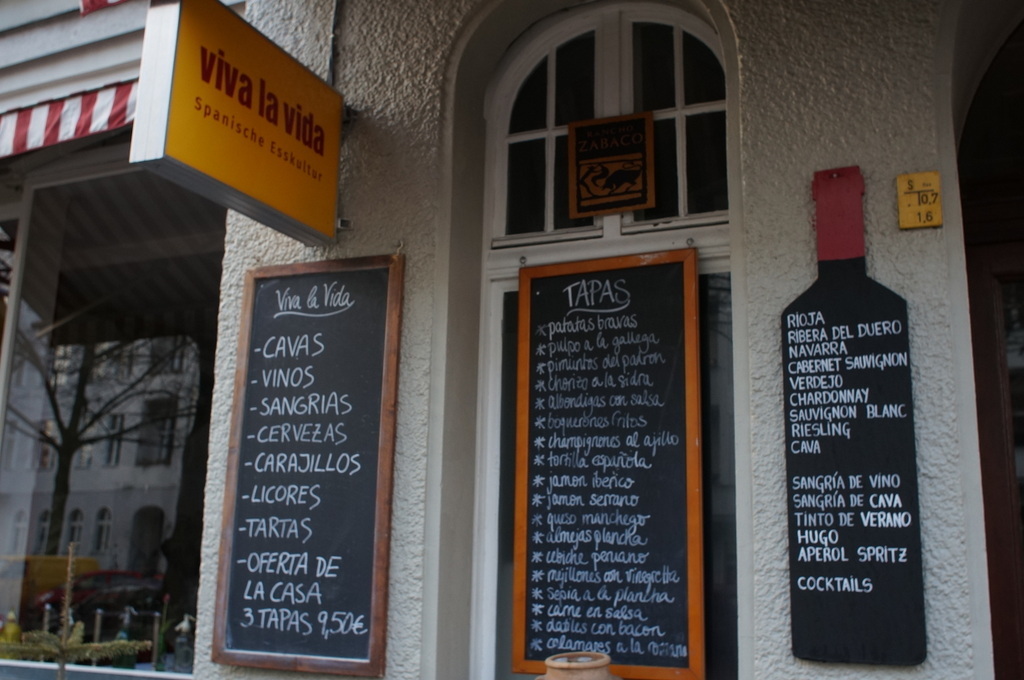 viva la vida
Spanische Esskultur
Viva la Vida
-CAVAS
-VINOS
-SANGRIAS
-CERVEZAS
-CARAJILLOS
-LICORES
-TARTAS
-OFERTA DE
LA CASA
3 TAPAS 9,50€
RANCHO
ZABACO
TAPAS
*patatas bravas
*pulpo a la gallega
*pimientos del patron
*chorizo a la sidra
*albondigas con salsa
*boquerones fritos
*champignones al ajillo
*tortilla española
*jamon iberico
*jamon serrano
*queso manchego
*almejas plancha
*cebiche peruano
*mejillones con vinegretta
*sepia a la plancha
*carne en salsa
*datiles con bacon
*calamares a la romana
RIOJA
RIBERA DEL DUERO
NAVARRA
CABERNET SAUVIGNON
VERDEJO
CHARDONNAY
SAUVIGNON BLANC
RIESLING
CAVA
SANGRÍA DE VINO
SANGRÍA DE CAVA
TINTO DE VERANO
HUGO
APEROL SPRITZ
COCKTAILS
S
10,7
1,6